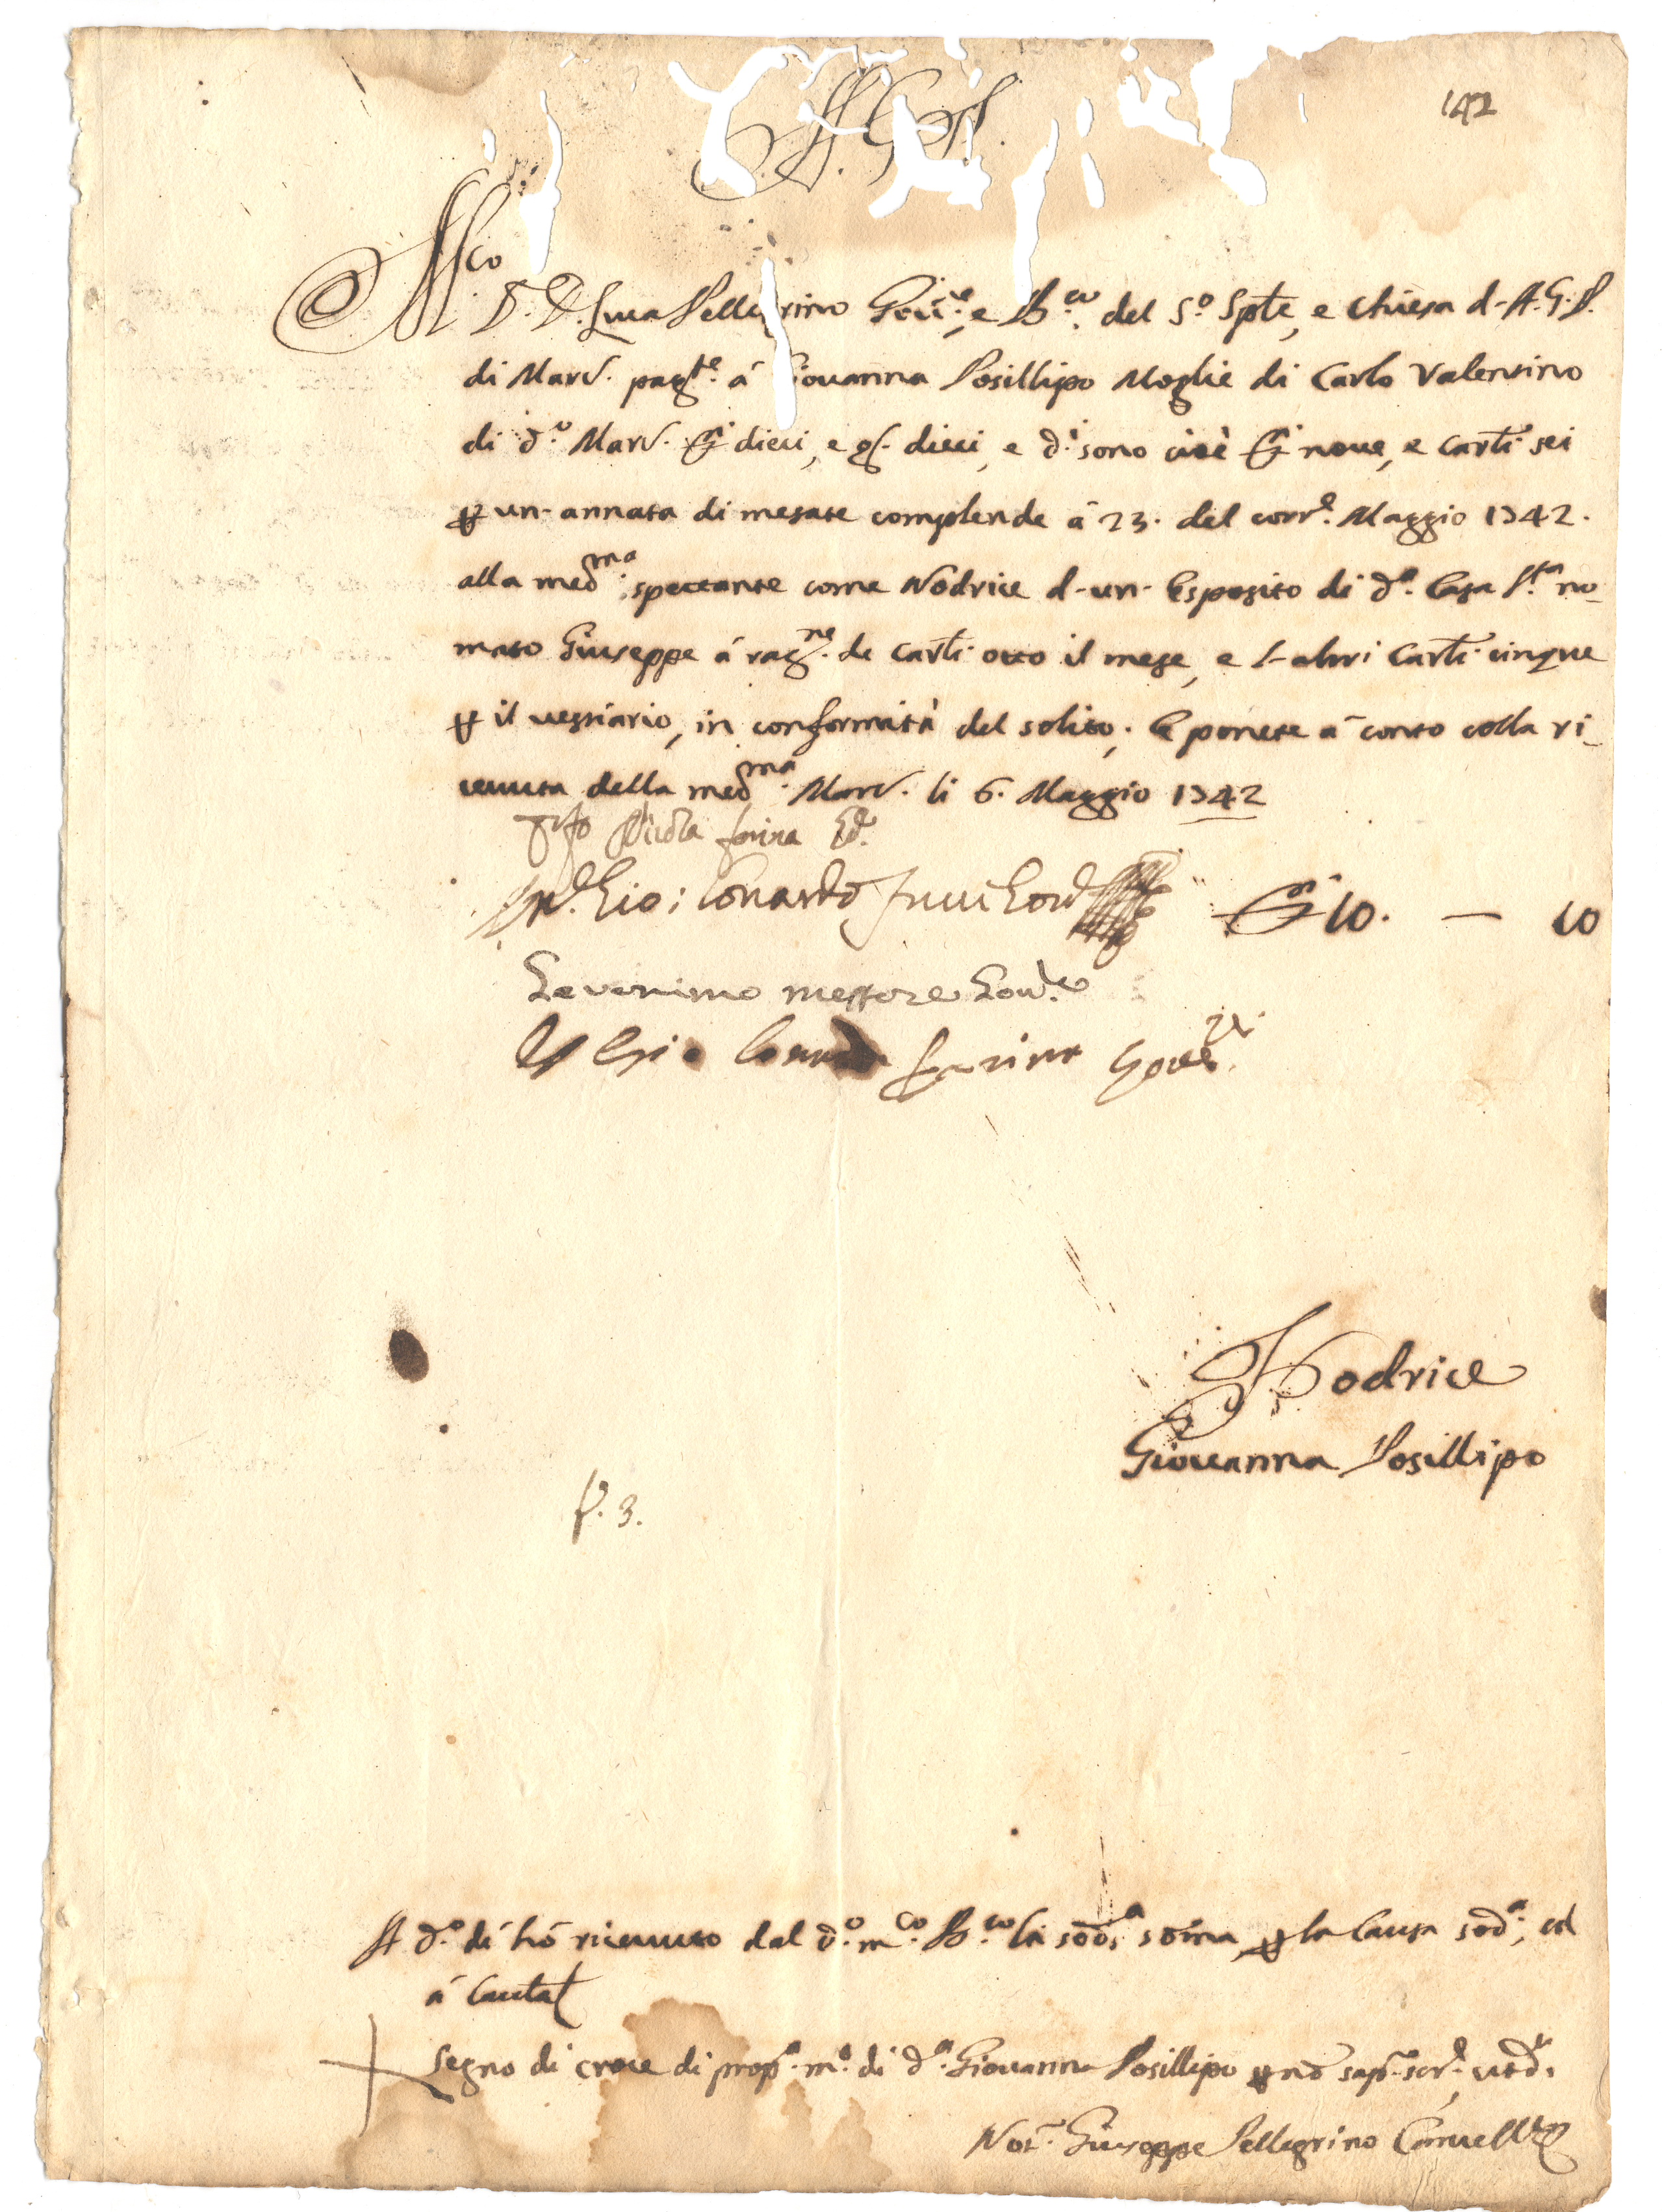 142
A. G. P.
M.co D. D. Luca Pellegrino Gov.re, e B.co del S.o Sple, e Chiesa d-A.G.P.
di Mard. pag.te á Giovanna Posillipo Moglie di Carlo Valentino
di d.o Mard. dieci, e gr. dieci, e d.i sono cioè nove, e Carli sei
p un-annata di mesate complende á 23. del corr.e Maggio 1742.
alla med.ma spettante come Nodrice d-un-Esposito di d.a Casa S.ta no-
mato Giuseppe á rag.ne de Carli otto il mese, e l-altri Carli cinque
p il vestiario, in conformità del solito; e ponete á conto colla ri-
cevuta della med.ma Mard. li 6. Maggio 1742
Nicola
Gio: Lonardo
10. — 10
Farina Gover.re
Nodrice
Giovanna Posillipo
f. 3.
A d.o dí hó ricevuto dal d.o m.co B.co la sod.a soma, p la causa sod.a, ed
á cautal
Segno di croce di prop.a m.o di d.a Giovanna Posillipo p nō sap. scr.e, ut d.r
Not. Giuseppe Pellegrino Cancell.re